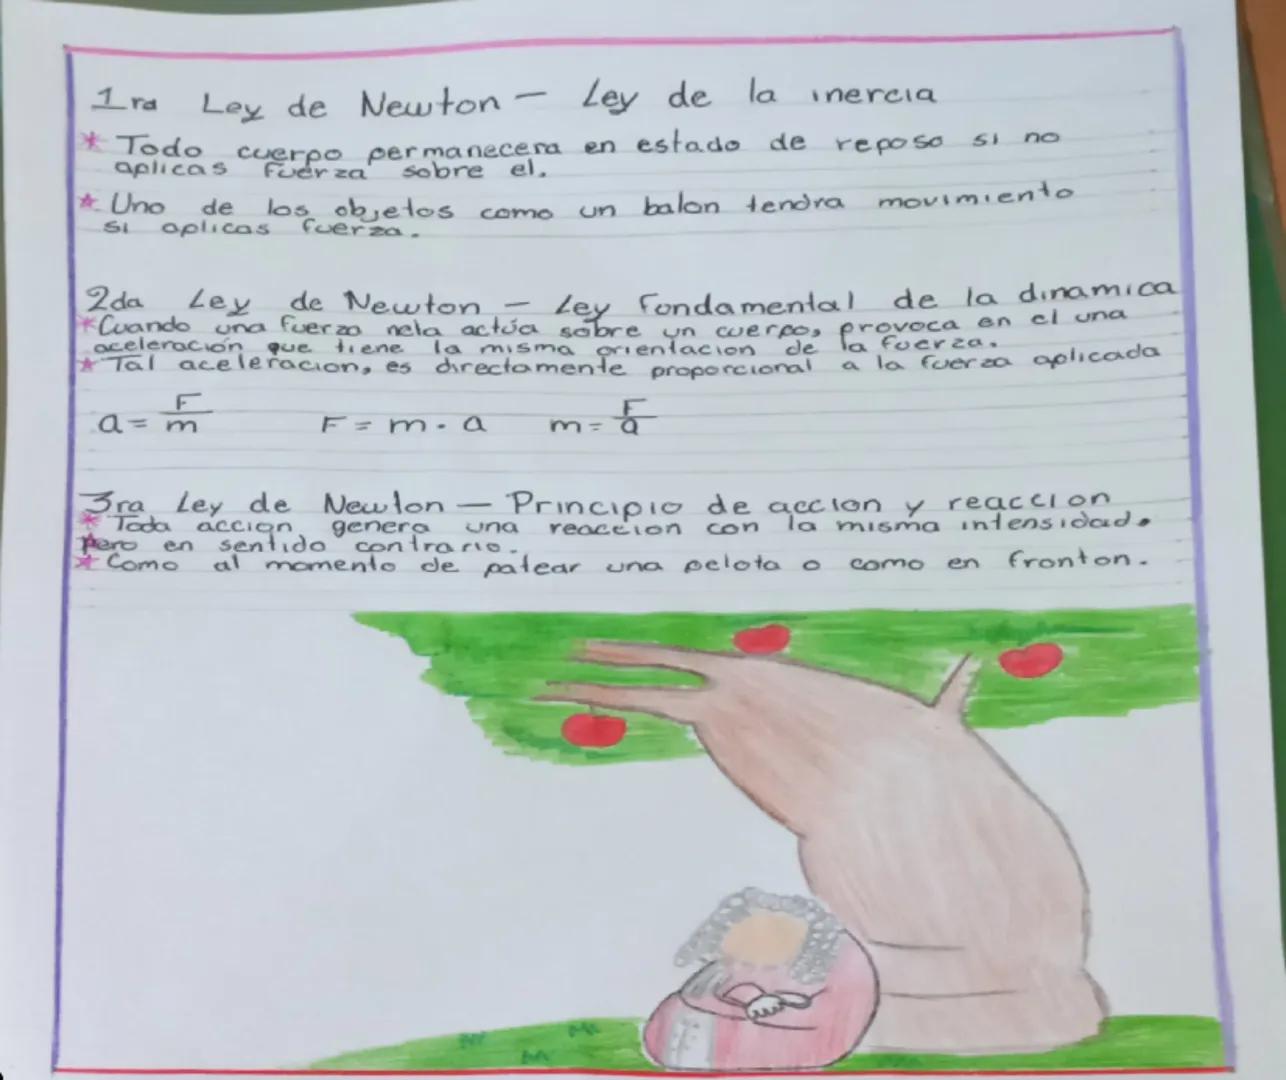 1ra Ley de Newton - Ley de la inercia
* Todo cuerpo permanecera en estado de reposo si no
aplicas fuerza sobre el.
* Uno de los objetos como un balon tendra movimiento
si aplicas fuerza.
2da Ley de Newton - Ley fondamental de la dinamica
* Cuando una fuerza neta actúa sobre un cuerpo, provoca en el una
aceleración que tiene la misma orientacion de la fuerza.
* Tal aceleracion, es directamente proporcional a la fuerza aplicada
a = F/m F = m . a m = F/a
3ra Ley de Newton - Principio de accion y reaccion
* Toda accion genera una reaccion con la misma intensidad,
pero en sentido contrario.
* Como al momento de patear una pelota o como en fronton.